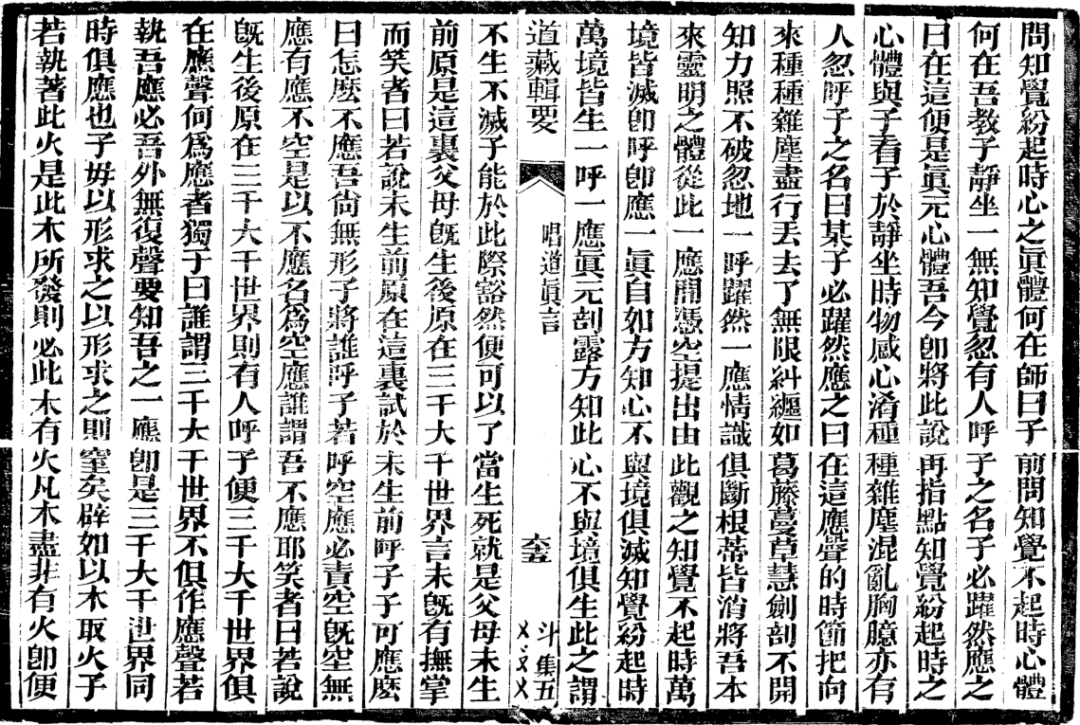 問知覺紛起時心之眞體何在師曰子前問知覺不起時心體
何在吾教子靜坐一無知覺忽有人呼子之名子必躍然應之
曰在這便是眞元心體吾今卽將此說再指點知覺紛起時之
心體與子看子於靜坐時物感心淆種種雜塵混亂胸臆亦有
人忽呼子之名曰某子必躍然應之曰在這應聲的時節把向
來種種雜塵盡行丟去了無限糾纏如葛藤蔓草慧劍剖不開
知力照不破忽地一呼躍然一應情識俱斷根蒂皆消將吾本
來靈明之體從此一應閒憑空提出由此觀之知覺不起時萬
境皆滅卽呼卽應一眞自如方知心不與境俱滅知覺紛起時
萬境皆生一呼一應眞元剖露方知此心不與境俱生此之謂
道藏輯要 唱道眞言 斗集五
不生不滅子能於此際豁然便可以了當生死就是父母未生
前原是這裏父母旣生後原在三千大千世界言未旣有撫掌
而笑者曰若說未生前原在這裏試於未生前呼子子可應麽
曰怎麽不應吾尙無形子將誰呼子若呼空應必責空旣空無
應有應不空是以不應名爲空應誰謂吾不應耶笑者曰若說
旣生後原在三千大千世界則有人呼子便三千大千世界俱
在應聲何爲應者獨子曰誰謂三千大千世界不俱作應聲若
執吾應必吾外無復聲要知吾之一應卽是三千大千世界同
時俱應也子毋以形求之以形求之則窒矣辟如以木取火子
若執著此火是此木所發則必此木有火凡木盡非有火卽便